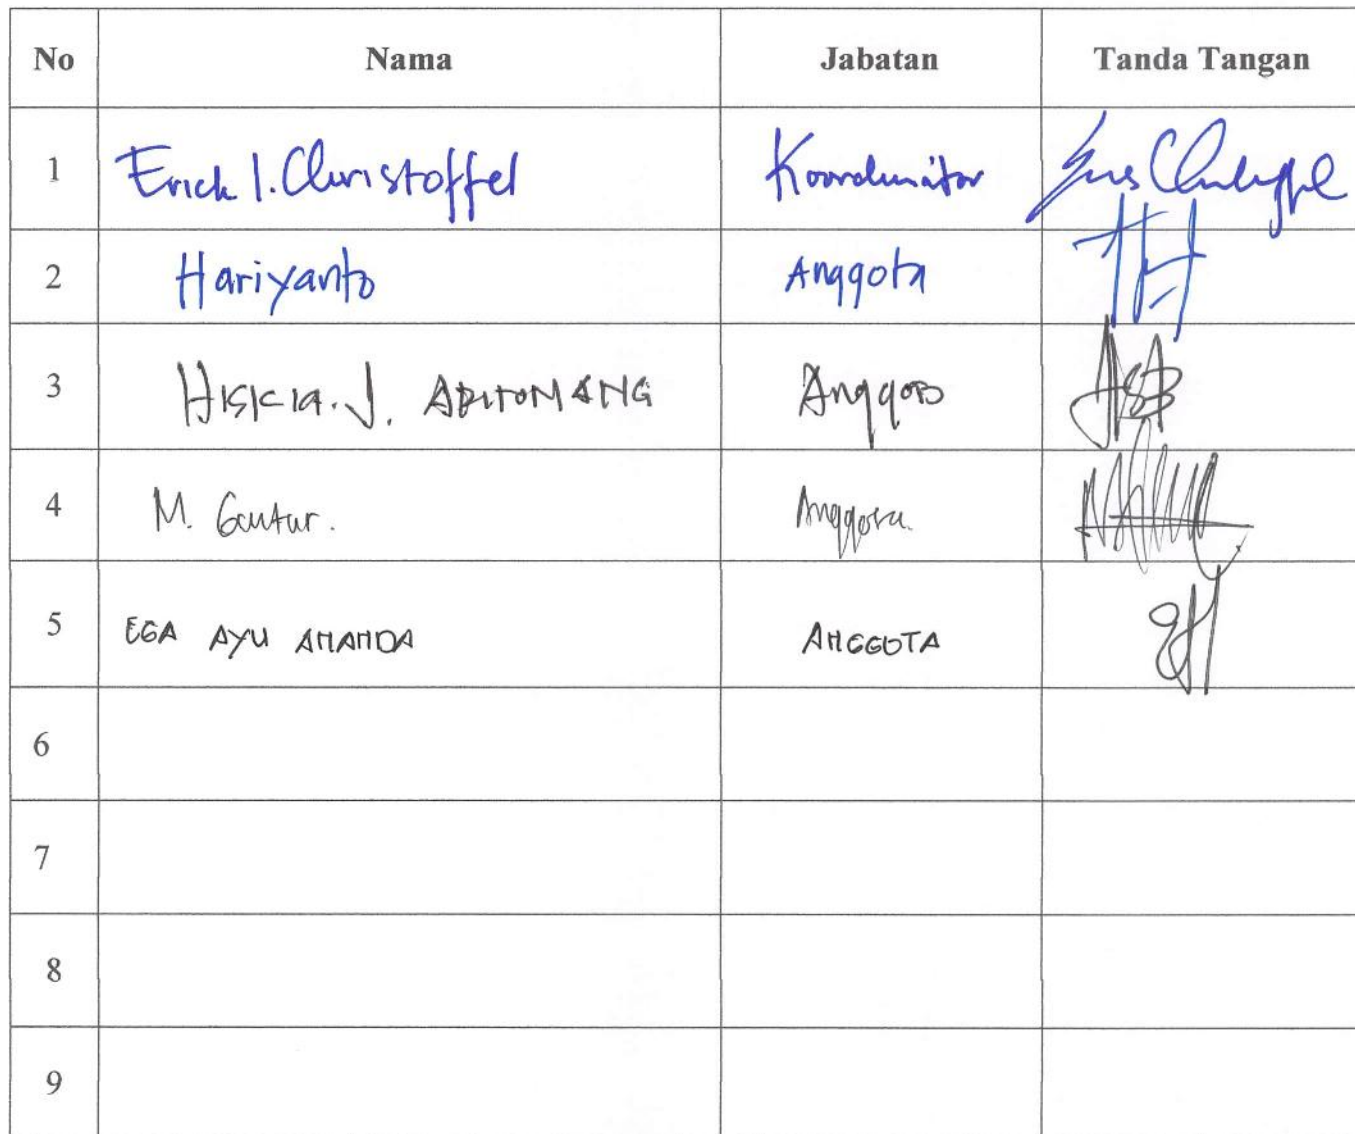 No Nama Jabatan Tanda Tangan
1 Erick I. Christoffel Koordinator
2 Hariyanto Anggota
3 Hiskia. J. Anggota
4 M. Guntur. Anggota.
5 EGA AYU ANANDA ANGGOTA
6
7
8
9